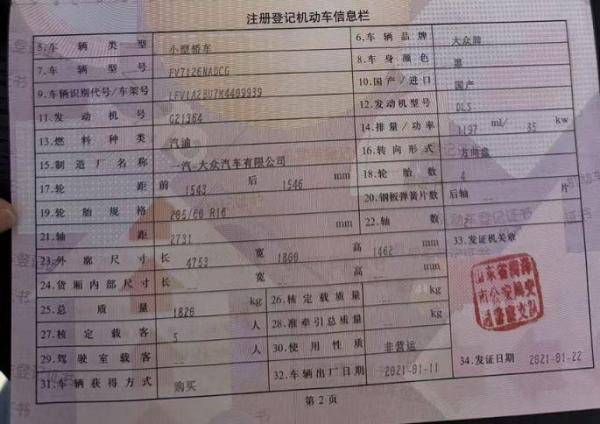 注册登记机动车信息栏
5.车辆类型 小型轿车 6.车辆品牌 大众牌
7.车辆型号 FV7126NADCG 8.车身颜色 黑
9.车辆识别代号/车架号 LFV1A2BU7K4409939 10.国产/进口 国产
11.发动机号 G21364 12.发动机型号 DLS
13.燃料种类 汽油 14.排量/功率 1197 ml/ 85 kw
15.制造厂名称 一汽-大众汽车有限公司 16.转向形式 方向盘
17.轮距 前 1543 后 1546 mm 18.轮胎数 4
19.轮胎规格 205/60 R16 20.钢板弹簧片数 后轴 -- 片
21.轴距 2731 mm 22.轴数 2
23.外廓尺寸 长 4753 宽 1800 高 1462 mm 33.发证机关章
24.货厢内部尺寸 长 -- 宽 -- 高 -- mm
25.总质量 1820 kg 26.核定载质量 -- kg
27.核定载客 5 人 28.准牵引总质量 -- kg
29.驾驶室载客 -- 人 30.使用性质 非营运
31.车辆获得方式 购买 32.车辆出厂日期 2021-01-11 34.发证日期 2021-01-22
第2页